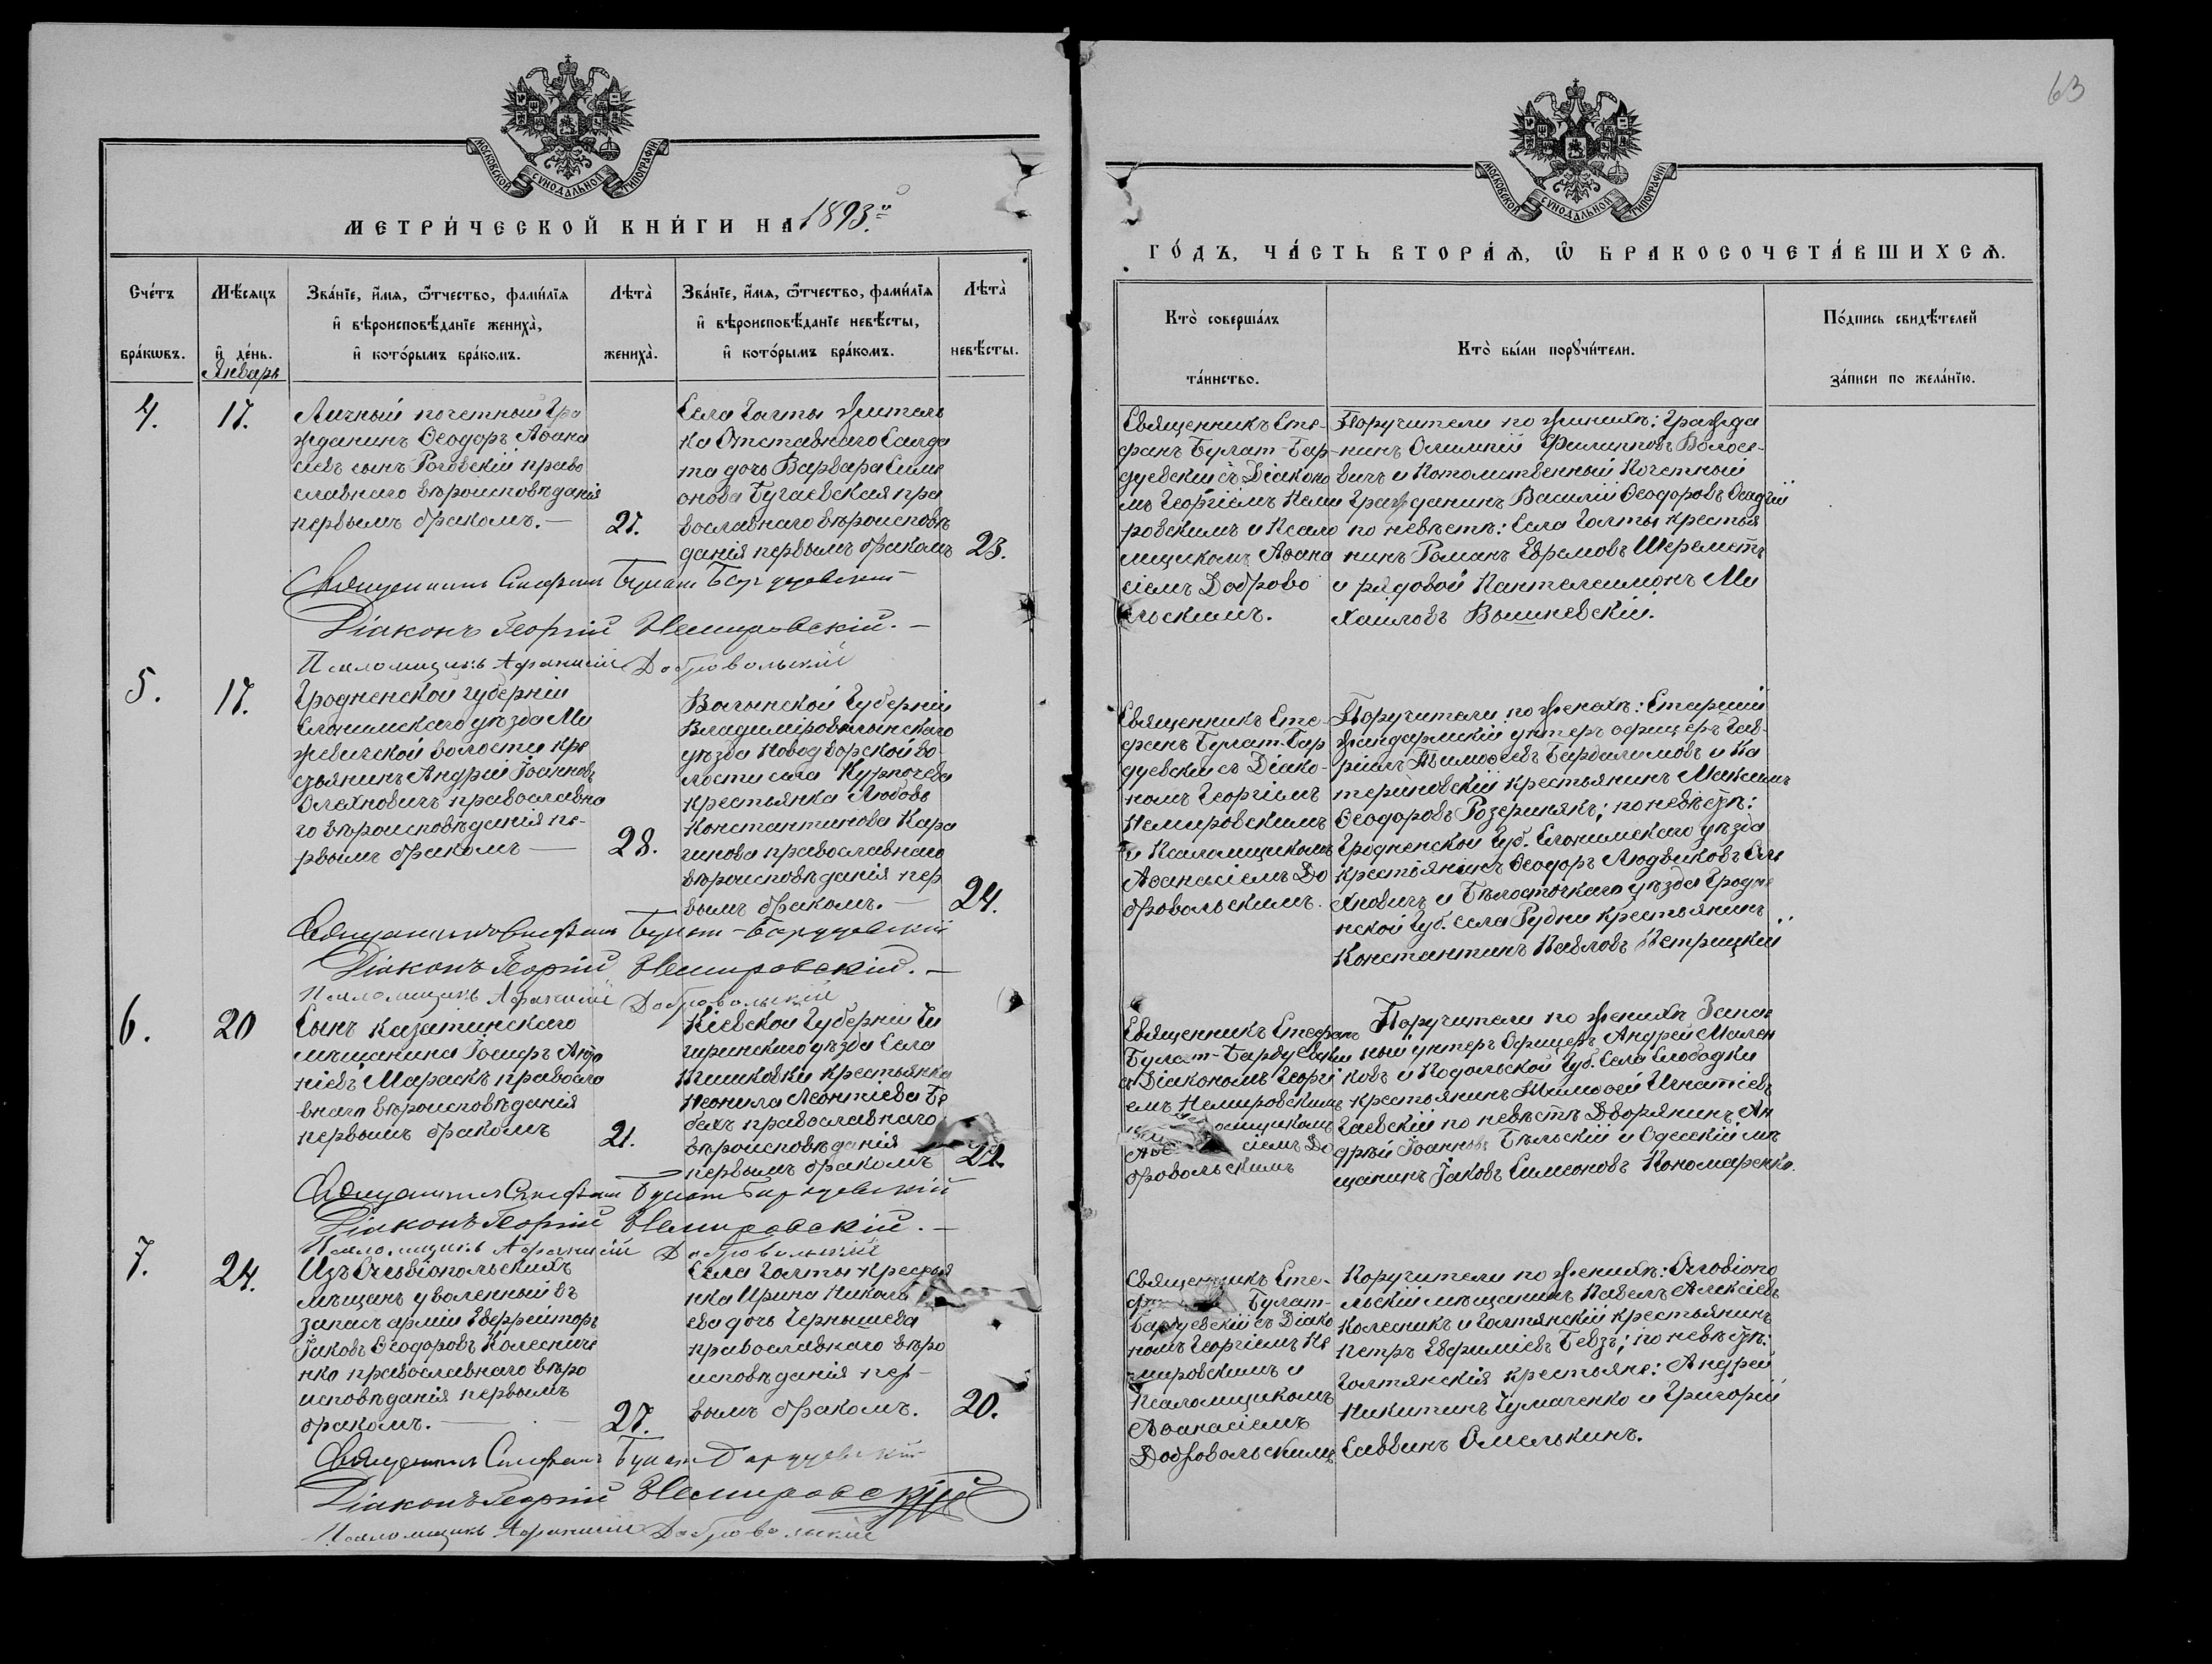 63
МОСКОВСКОЙ СѴНОДАЛЬНОЙ ТИПОГРАФІИ
МЕТРИ́ЧЕСКОЙ КНИ́ГИ НА 1893.й
Сче́тъ бра́кѡвъ.
Мѣ́сѧцъ и҆ де́нь.
Январь
Зва́нїе, и҆́мѧ, ѻ҆́тчество, фами́лїѧ
и҆ вѣроисповѣ́данїе жениха̀,
и҆ кото́рымъ бра́комъ.
Лѣта̀
жениха̀.
Зва́нїе, и҆́мѧ, ѻ҆́тчество, фами́лїѧ
и҆ вѣроисповѣ́данїе невѣ́сты,
и҆ кото́рымъ бра́комъ.
Лѣта̀
невѣ́сты.
4.
17.
Личный почетный Гра
жданинъ Ѳеодоръ Аѳана
сіевъ сынъ Роговскій право
славнаго вѣроисповѣданія
первымъ бракомъ.—
27.
Села Голты жтель
ка Отставнаго Солда
та дочь Варвара Симе
онова Бугаевская пра
вославнаго вѣроисповѣ
данія первымъ бракомъ
23.
Священникъ Стефанъ Булат Бардуевскій
Діаконъ Георгій Немировскій.—
Псаломщикъ Афанасій Добровольскій
5.
17.
Гродненской губерніи
Слонимскаго уѣзда Ми
жевичской волости кре
стьянинъ Андрей Іоанновъ
Олахновичъ православна
го вѣроисповѣданія пе-
рвымъ бракомъ —
28.
Волынской Губерніи
Владиміроволынскаго
уѣзда Новодворской во-
лости села
крестьянка Любовь
Константинова Кара
православнаго
вѣроисповѣданія пер
вымъ бракомъ.—
24.
Священникъ Стефанъ Булат-Бардуевскій
Діаконъ Георгій Немировскій.—
Псаломщикъ Афанасій Добровольскій
6.
20
Сынъ казатинскаго
мѣщанина Іосифъ Анто
ніевъ Мараскъ правосла
внаго вѣроисповѣданія
первымъ бракомъ
21.
Кіевской Губерніи Чи
гиринскаго уѣзда Села
крестьянка
Неонила Леонтіева Бе
бехъ православнаго
вѣроисповѣданія
первымъ бракомъ
22.
Священникъ Стефанъ Булат Бардуевскій
Діаконъ Георгій Немировскій.—
Псаломщикъ Афанасій Добровольскій
7.
24.
Изъ Ольвіопольскихъ
мѣщанъ уволенный въ
запасъ арміи Ефрейторъ
Іаковъ Ѳеодоровъ Колесниче
нко православнаго вѣро
исповѣданія первымъ
бракомъ.—
27.
Села Голты крестья
нка Ирина Никола
ева дочь Чернышева
православнаго вѣро
исповѣданія пер-
вымъ бракомъ.
20.
Священникъ Стефанъ Булат Бардуевскій
Діаконъ Георгій Немировскій
Псаломщикъ Афанасій Добровольскій
МОСКОВСКОЙ СѴНОДАЛЬНОЙ ТИПОГРАФІИ
ГО́ДЪ, ЧА́СТЬ ВТОРА́Ѧ, Ѡ҆ БРАКОСОЧЕТА́ВШИХСѦ.
Кто̀ соверша́лъ
та́инство.
Кто̀ бы́ли порꙋчи́тели.
По́дпись свидѣ́телей
за́писи по жела́нїю.
Священникъ Сте-
фанъ Булат-Бар-
дуевскій съ Діаконо
мъ Георгіемъ Неми
ровскимъ и Псало
мщикомъ Аѳана
сіемъ Доброво
льскимъ.
Поручители по женихѣ: Гражда
нинъ Олимпій Филипповъ Волосе-
вичъ и Потомственный Почетный
Гражданинъ Василій Ѳеодоровъ Осадчій
по невѣстѣ: Села Голты крестья
нинъ Романъ Ефремовъ Шереметъ
и рядовой Пантелеимонъ Ми
хаиловъ Вышневскій.
Священникъ Сте-
фанъ Булат-Бар
дуевскій съ Діако-
номъ Георгіемъ
Немировскимъ
и Псаломщикомъ
Аѳанасіемъ До
бровольскимъ.
Поручители по женихѣ: Старшій
жандармскій унтеръ офицеръ Гав-
ріилъ Тимоѳеевъ и Ка
териновскій крестьянинъ Максимъ
Ѳеодоровъ; по невѣстѣ:
Гродненской Губ. Слонимскаго уѣзда
крестьянинъ Ѳеодоръ Людвиковъ Ола
хновичъ и Бѣлостокскаго уѣзда Гродне
нской Губ. села Рудни крестьянинъ
Константинъ Павловъ Петрицкій
Священникъ Стефанъ
Булат-Бардуевскій
съ Діакономъ Георгі
емъ Немировскимъ
омщикомъ
сіемъ До
бровольскимъ
Поручители по женихѣ Запас
ный унтеръ Офицеръ Андрей Мален
ковъ и Подольской Губ. Села Слободки
крестьянинъ Тимоѳей Игнатіевъ
Гаевскій по невѣстѣ Дворянинъ Ан
дрей Іоанновъ Бѣльскій и Одесскій мѣ
щанинъ Іаковъ Симеоновъ Кономаренко.
Священникъ Сте-
Булат-
Бардуевскій съ Діако
номъ Георгіемъ Не
мировскимъ и
Псаломщикомъ
Аѳанасіемъ
Добровольскимъ
Поручители по женихѣ: Олвіопо
льскій мѣщанинъ Павелъ Алексіевъ
Колесникъ и Голтянскій крестьянинъ
Петръ Евфиміевъ Бевзъ; по невѣстѣ:
Голтянскія крестьяне: Андрей
Никитинъ Чумаченко и Григорій
Саввинъ Омелькинъ.